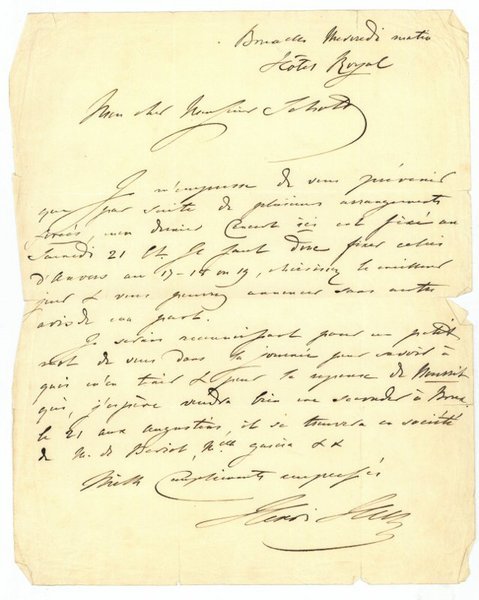 Bruxelles Mercredi matin
Hôtel Royal
Mon cher Monsieur Schott
Je m'empresse de vous prévenir
que par suite de plusieurs arrangements
forcés, mon dernier Concert ici est fixé au
Samedi 21 Ct. Il faut donc fixer celui
d'Anvers au 17-18 ou 19, choisissez le meilleur
jour & vous pourrez annoncer sans autre
avis de ma part.
Je serais reconnaissant pour un petit
mot de vous dans la journée pour savoir à
quoi m'en tenir & pour la réponse de
qui, j'espère voudra bien me seconder à Brux.
le 21 aux augustins, il se trouvera en société
de M. de Beriot, Mlle garcia &&
Mille Compliments empressés
Henri Herz